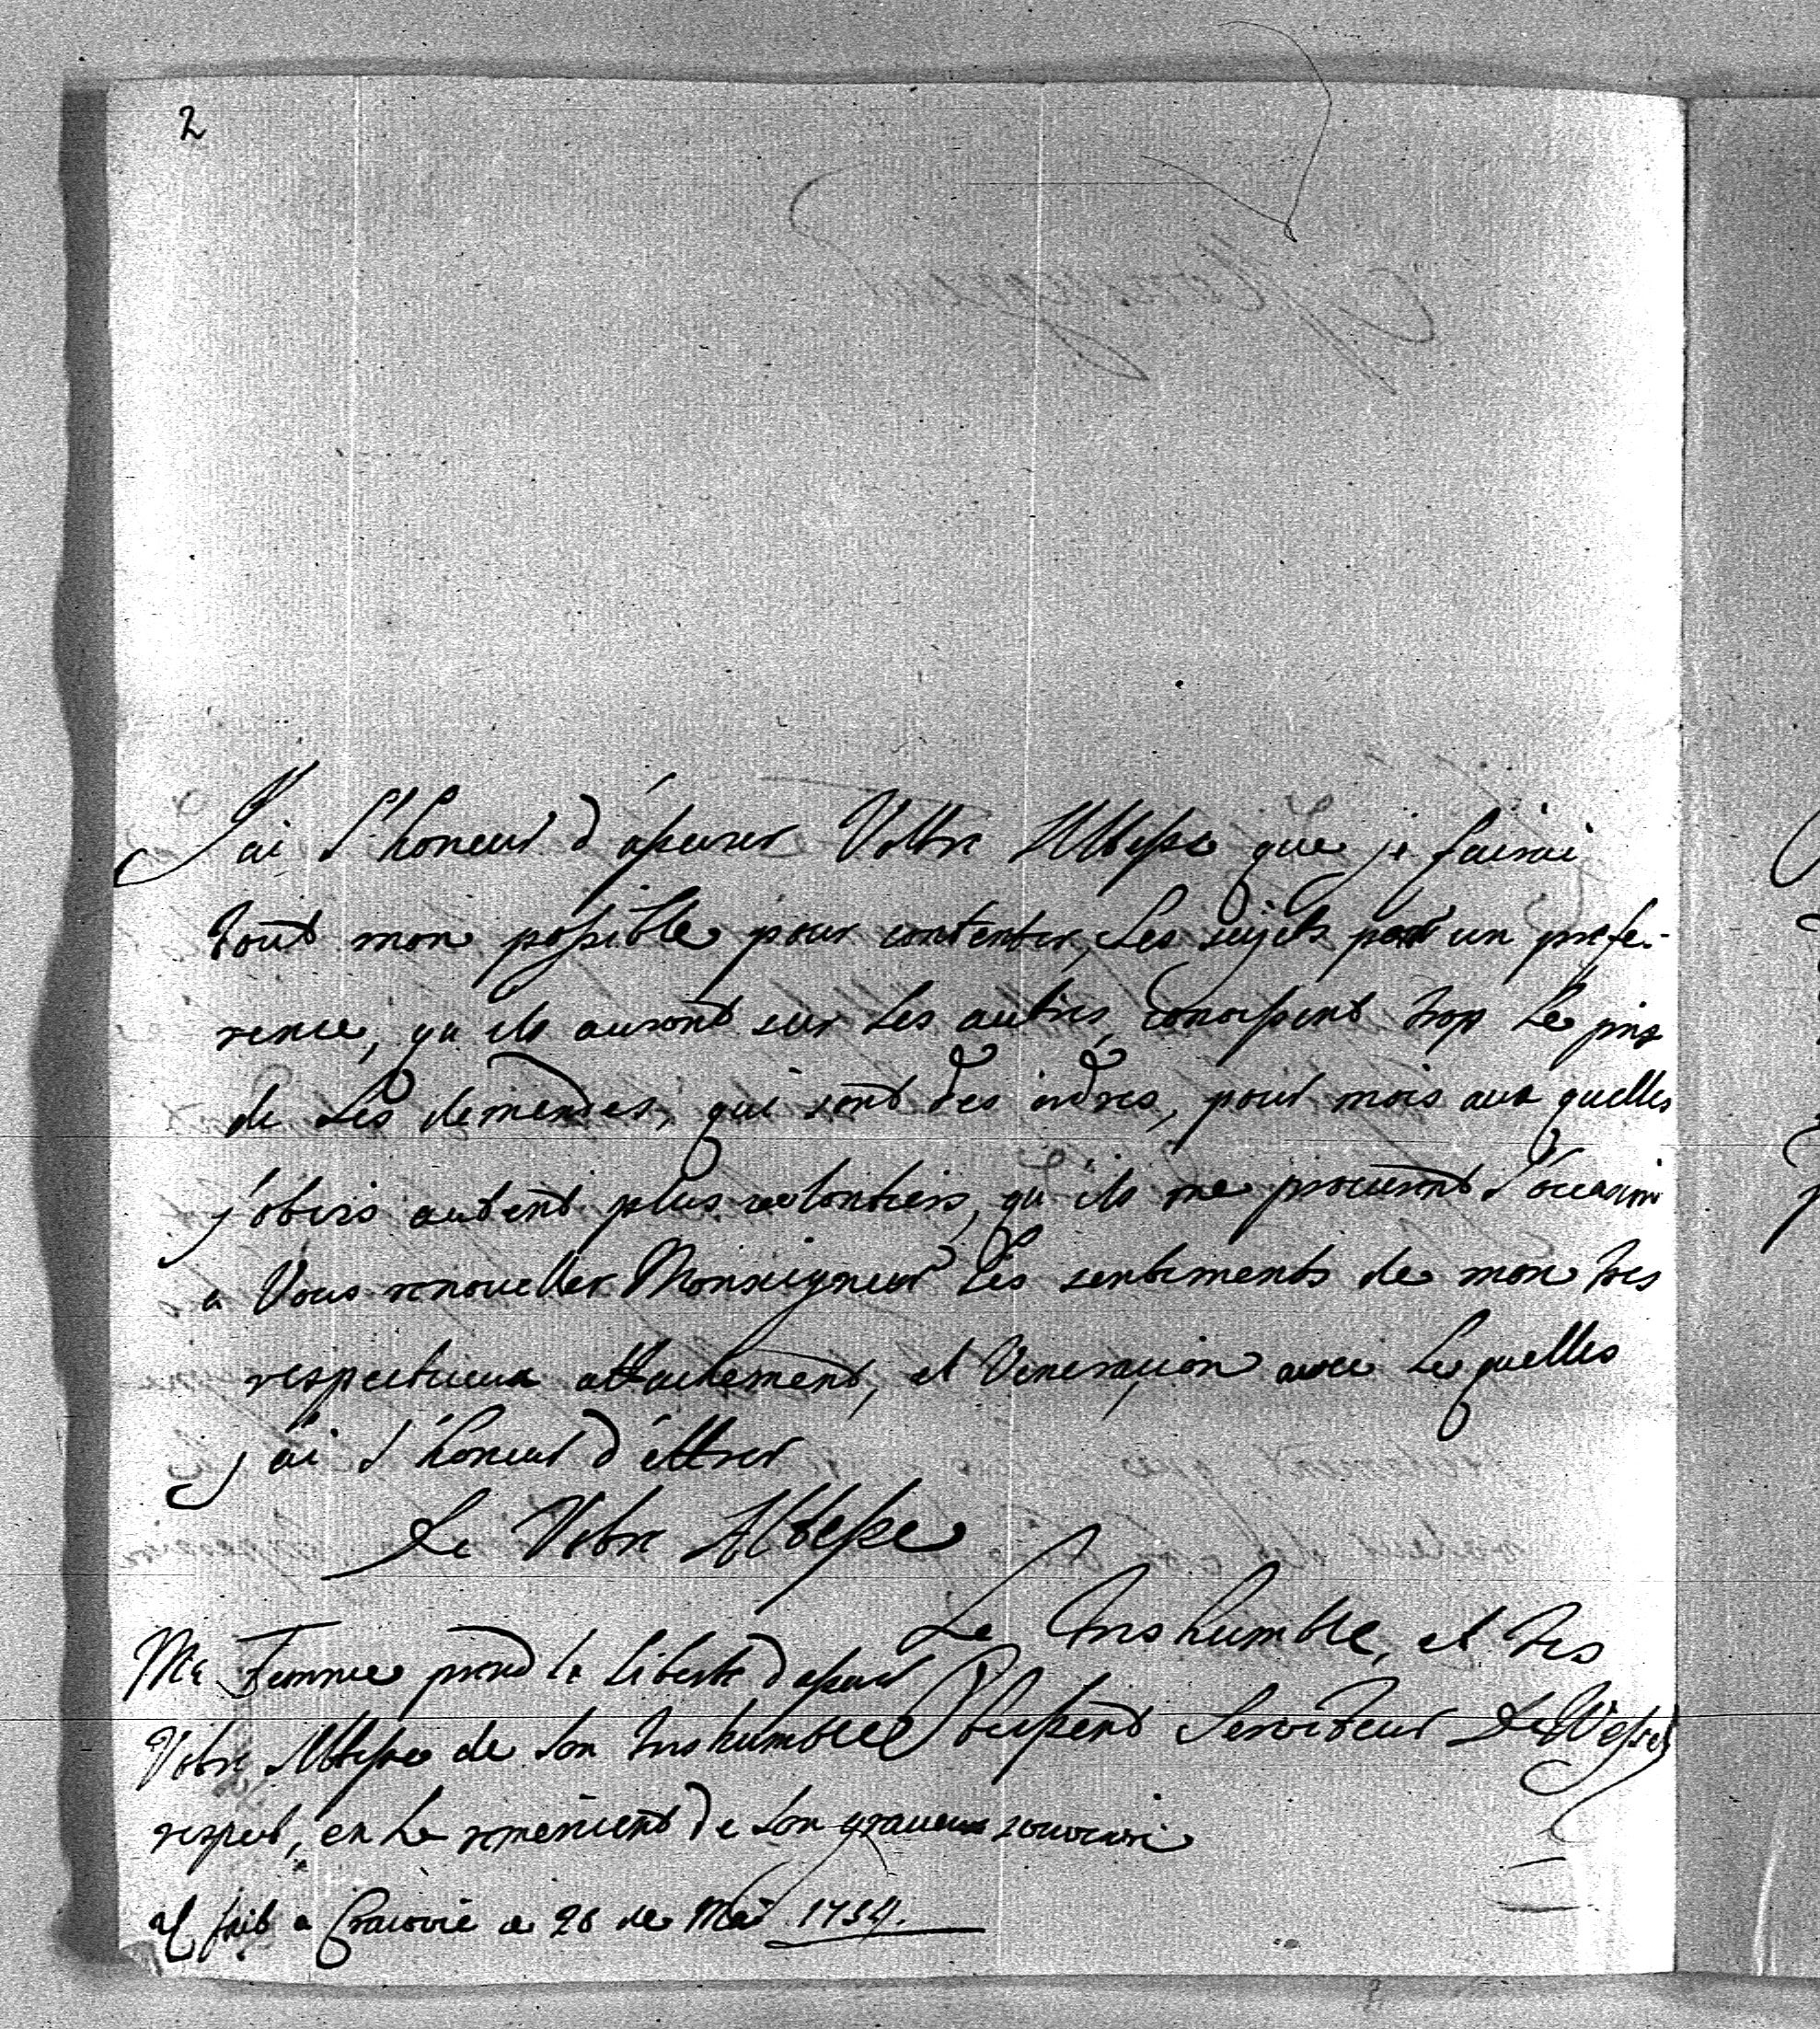 2
J'ai l'honeur d'assurer Vottre Alltesse que je fairai
tout mon possible pour contenter, ses sujets par un prefe-
rence, qu ils auront sur les autres, conoissent trop le prix
de ses demendes, qui sont des ordres, pour mois aux quelles
j'obeis autent plus volontiers, qu'ils me procurent l'occasion
a Vous renouveller Monseigneur les sentiments de mon tres
respectueux attachement, et Veneracion avec lesquelles
j'ai l'honeur d'ettrer
De Votre Altesse
Le tres humble, et tres
obeissent Serviteur De Wessel
Ma Femme prend la liberte d'assurer
Votre Alltesse de son tres humble
respect, en la remercient de son gracieux souvenir
fait a Cracovie ce 26 de Mai 1754.